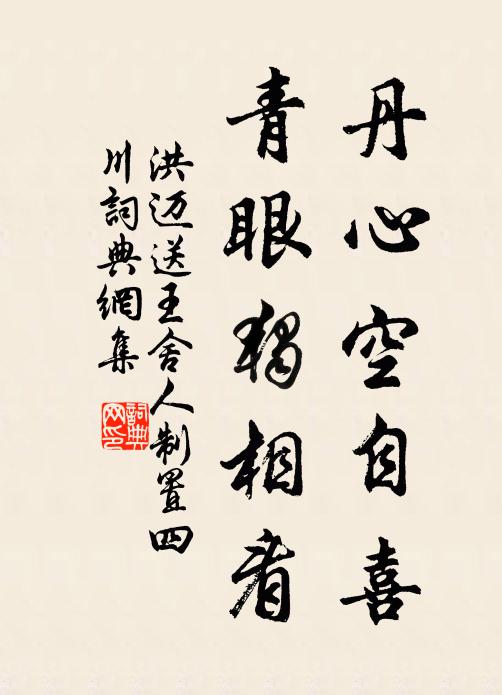 丹心空自喜
青眼独相看
洪迈送王舍人制置四
川詞典網集
詞典
网印